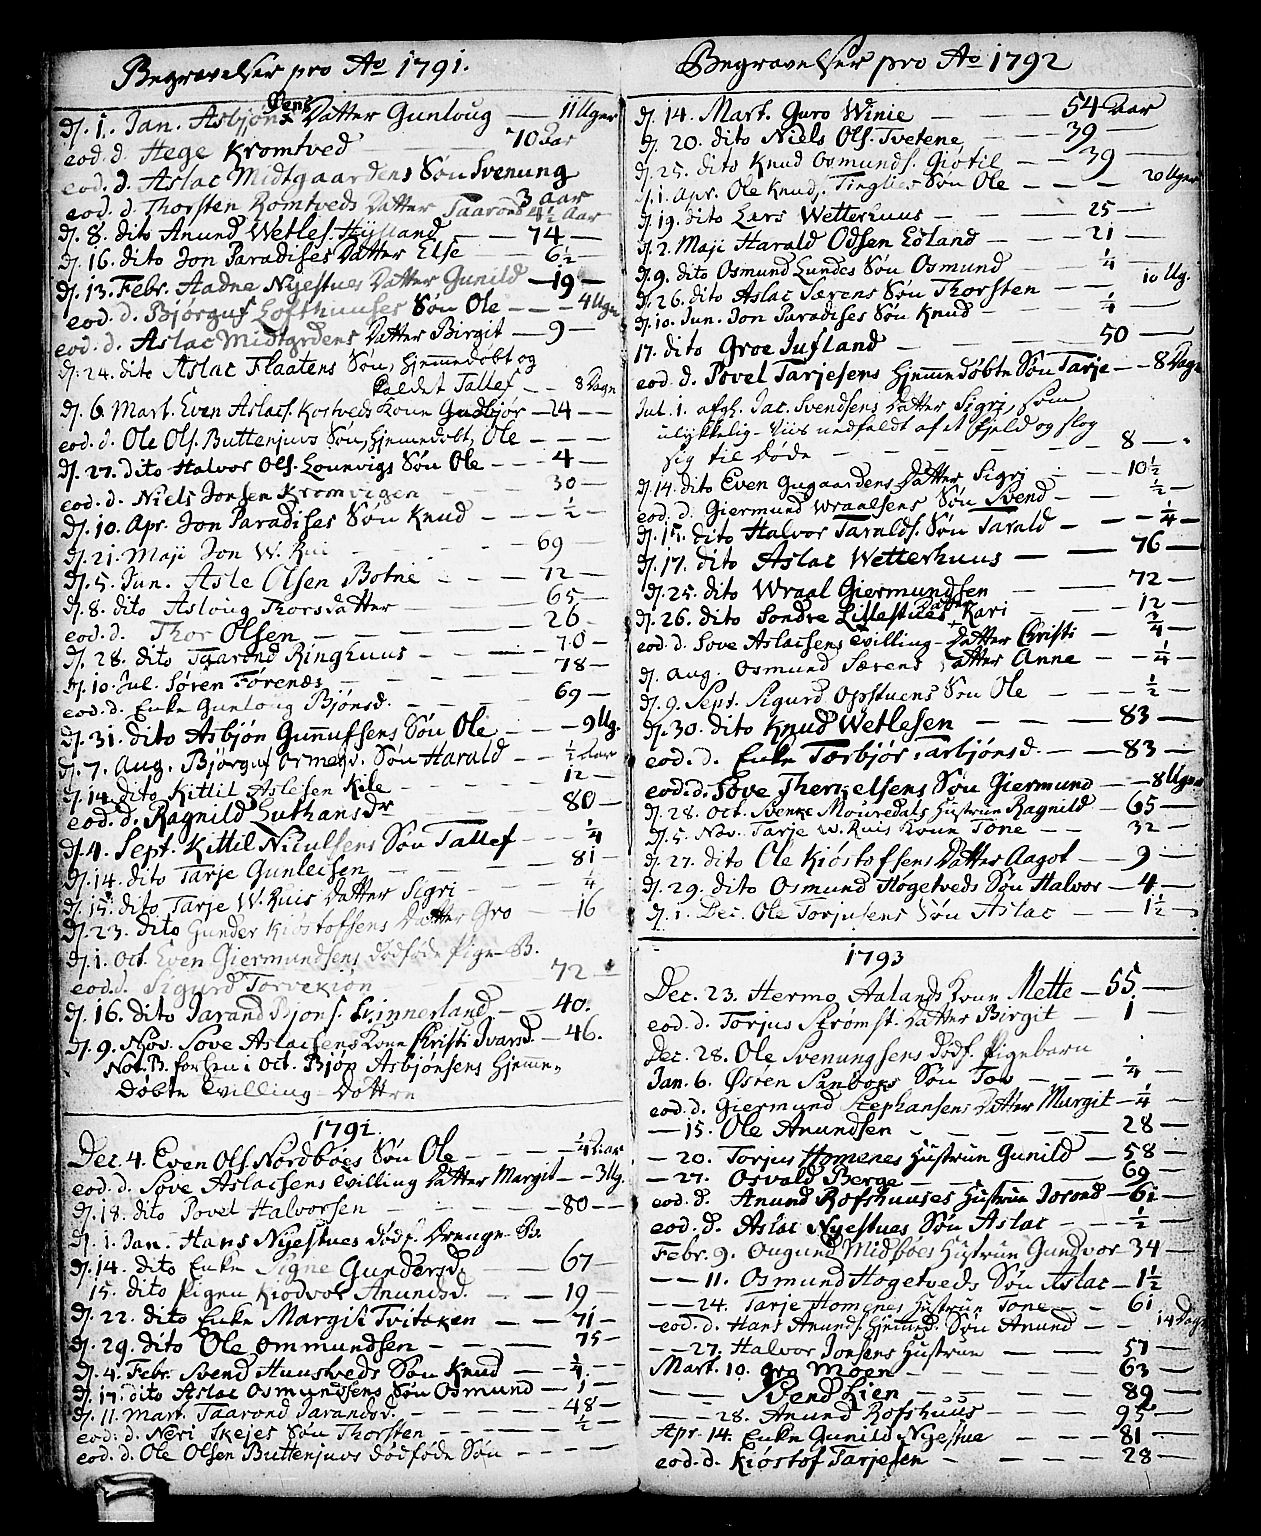 Begravelser pro Ao 1791.
d. 1. Jan. Asbjøns Datter Gunloug — 11 Uger
eod. d. Hege Kromtved — 70 Aar
eod. d. Aslac Midtgaardens Søn Svenung 3 Aar
eod. d. Thorsten Romtveds Datter Taarond 4½ Aar
d. 8. dito Anund Wetles. Hufland — 74 —
d. 16. dito Jon Paradises Datter Else — 6½ —
d. 13. Febr. Aadne Nyestues Datter Gunild — 19 —
eod. d. Bjørguf Lofthuuses Søn Ole — 4 Uger
eod. d. Aslac Midtgrdens Datter Birgit — 9 —
d. 24. dito Aslac Flaatens Søn, hjemmedøbt og
kaldet Tallef — 8 Dage
d. 6. Mart. Even Aslacs. Kostveds Kone Gudbjør — 24 —
eod. d. Ole Ols. Buttenjuvs Søn, hjemedøbt, Ole — — —
d. 27. dito Halvor Ols. Lounvigs Søn Ole — 4 —
eod. d. Niels Jonsen Kromvigen — 30 —
d. 10. Apr. Jon Paradises Søn Knud — ½ —
d. 21. Maji Jon W. Rui — 69 —
d. 5. Jun. Asle Olsen Botne — 12 —
d. 8. dito Asloug Thorsdatter — 65 —
eod. d. Thor Olsen — 26 —
d. 28. dito Taarond Ringhuus — 70 —
d. 10. Jul. Søren Førenæs — 78 —
eod. d. Enke Gunloug Bjønsd. — 69 —
d. 31. dito Asbjøn Gunnufsens Søn Ole — 9 Ug.
d. 7. Aug. Bjørguf Ormes. Søn Harald — ½ Aar
d. 14 dito Kittil Aslesen Kile — 12 —
eod. d. Ragnild Guthansdr — 80 —
d. 4. Sept. Kittil Niculsens Søn Tallef — ¼
d. 14. dito Tarje Gunleisen — 81 —
d. 15. dito Tarje W. Ruis Datter Sigri — ¼
d. 23. dito Gunder Kiøstofsens Datter Gro — 16
d. 1. Oct. Even Giermundsens dødføde Pige-B.
eod. d. Sigurd Torvekiøn — 72
d. 16. dito Jarand Bjons. Linnerland — 40.
d. 9. Nov. Sove Aslacsens Kone Christi Ivarsd. — 46.
Not. B. for hen i Oct. Bjøn Asbjønsens Hjemme-
døbte Tvilling Datter
1791.
Dec. 4. Even Ols. Nordboes Søn Ole — ¼ Aar
eod. d. Sove Aslacsens Tvilling Datter Margit — 3 Ug.
d. 18. dito Povel Halvorsen — 80 —
d. 1. Jan. Hans Nyestues dødf. Drenge-B.
d. 14. dito Enke Signe Gundersd. — 67 —
15. dito Pigen Kiødvor Anundsd. — 19 —
d. 22. dito Enke Margit Tvitøen — 71 —
d. 29. dito Ole Ommundsen — 75 —
d. 4. Febr. Svend Huusveds Søn Knud — ¼ —
d. 17. dito Aslac Osmundsens Søn Osmund — 1 —
d. 11. Mart. Taarond Jarandsd. — 48 —
eod. d. Neri Skejes Søn Thorsten — ½ —
eod. d. Ole Olsen Buttenjuvs dødføde Søn — — — —
Begravelser pro Ao 1792
d. 14. Mart. Guro Winie — 54 Aar
d. 20. dito Niels Ols. Tvetene — 39 —
d. 25. dito Knud Osmunds. Giøtil — 39 —
d. 1. Apr. Ole Knuds. Tingljes Søn Ole — 20 Uger
d. 19. dito Lars Wetterhuus — 25 —
d. 2. Maji Harald Odsen Esland — 21 —
d. 9. dito Osmund Lundes Søn Osmund — ¼ —
d. 26. dito Aslac Særens Søn Thorsten — 10 Ug.
d. 10. Jun. Jon Paradises Søn Knud — ¼ —
17. dito Groe Jufland — 50 —
eod. d. Povel Tarjesens hjemmedøbte Søn Tarje — 8 Dage
Jul. 1. afgl. Jac. Svendsens Datter Sigri, som
ulykkelig-Viis nedfaldt af et Fjeld og slog
sig til Døde — 8 —
d. 14. dito Even Gugaardens Datter Sigri — 10½
eod. d. Giermund Wraalsens Søn Svend — ½ —
d. 15. dito Halvor Taralds. Søn Tarald — ¼ —
d. 17. dito Aslac Wetterhuus — 76 —
d. 25. dito Wraal Giermundsen — 72 —
d. 26. dito Sondre Lillestues Datter Kari — 12 —
eod. d. Sove Aslacsens Tvilling-Datter Christi — ¾ —
d. Aug. Osmund Særens Datter Anne — ¼ —
d. 9. Sept. Sigurd Opstuens Søn Ole — ½ —
d. 30. dito Knud Wetlesen — 83 —
eod. d. Enke Torbjør Tarbjønsd. — 83 —
eod. d. Sove Therjelsens Søn Giermund — 8 Uger
d. 28. Oct. Svenke Mouredals Hustrue Ragnild — 65 —
d. 5. Nov. Tarje W. Ruis Kone Tone — 32 —
d. 27. dito Ole Kiøstofsens Datter Aagot — 9 —
d. 29. dito Osmund Høgetveds Søn Halvor — 4 —
d. 1. Dec. Ole Torjusens Søn Aslac — 1½ —
1793
Dec. 23. Hermo Aalands Kone Mette — 55 —
eod. d. Torjus Strømst. Datter Birgit — 1 —
Dec. 28. Ole Svenungsens dødf. Pigebarn
Jan. 6. Øsren Sandoes Søn Tov — ¼ —
eod. d. Giermund Stephansens Datter Margit — ¼ —
— 15. Ole Anundsen — 28 —
— 20. Torjus Homenes Hustrue Gunild — 58 —
— 27. Osvald Berge — 69 —
eod. d. Anund Rofshuuses Hustrue Jorond — 61 —
eod. d. Aslac Nyestues Søn Aslac — ½ —
Febr. 9. Ougund Midbøes Hustrue Gundvor — 34 —
— 11. Osmund Høgetveds Søn Aslac — 1½
— 24. Tarje Homenes Hustrue Tone — 61
eod. d. Hans Anunds. hjemd. Søn Anund — 14 Dage
— 27. Halvor Jonsens Hustrue — 57 —
Mart. 10. Gro Moen — 63 —
— — Svend Lien — 89 —
— — 28. Anund Rofshuus — 95 —
Apr. 14. Enke Gunild Nyestue — 81 —
eod. d. Kiøstof Tarjesen — 28 —